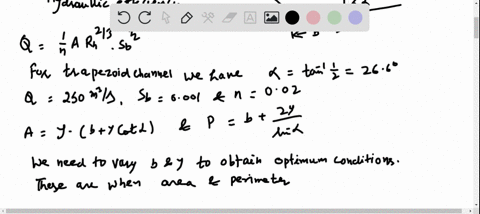 Hydraulic
Q = 1/n A Rh^2/3 . Sb^n
← b
For trapezoid channel we have α = tan⁻¹ 1/2 = 26.6°
Q = 250 m³/s, Sb = 0.001 & n = 0.02
A = y · (b + y cot α) & P = b + 2y/sin α
We need to vary b & y to obtain optimum conditions.
These are when area & perimeter